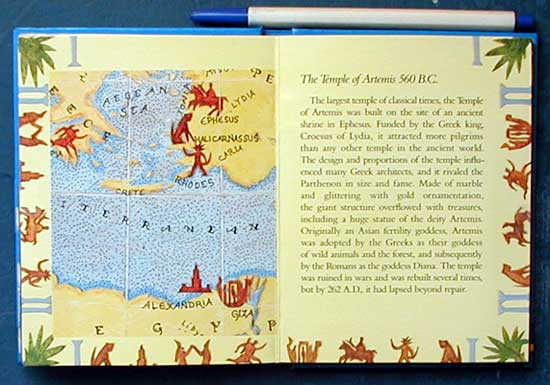 AEGEAN
SEA
LYDIA
EPHESUS
HALICARNASSUS
CARIA
RHODES
CRETE
ITERRANEAN
ALEXANDRIA
GIZA
EGYP
The Temple of Artemis 560 B.C.
The largest temple of classical times, the Temple
of Artemis was built on the site of an ancient
shrine in Ephesus. Funded by the Greek king,
Croesus of Lydia, it attracted more pilgrims
than any other temple in the ancient world.
The design and proportions of the temple influ-
enced many Greek architects, and it rivaled the
Parthenon in size and fame. Made of marble
and glittering with gold ornamentation,
the giant structure overflowed with treasures,
including a huge statue of the deity Artemis.
Originally an Asian fertility goddess, Artemis
was adopted by the Greeks as their goddess
of wild animals and the forest, and subsequently
by the Romans as the goddess Diana. The temple
was ruined in wars and was rebuilt several times,
but by 262 A.D., it had lapsed beyond repair.